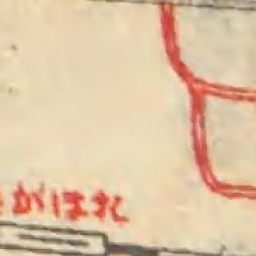 がはれ